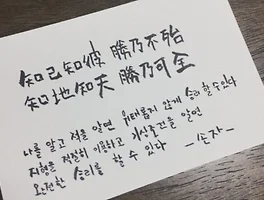 知己知彼 勝乃不殆
知地知天 勝乃可全
나를 알고 적을 알면 위태롭지 않게 승리 할 수 있다
지형을 적절히 이용하고 기상조건을 알면
완전한 승리를 할 수 있다 -손자-